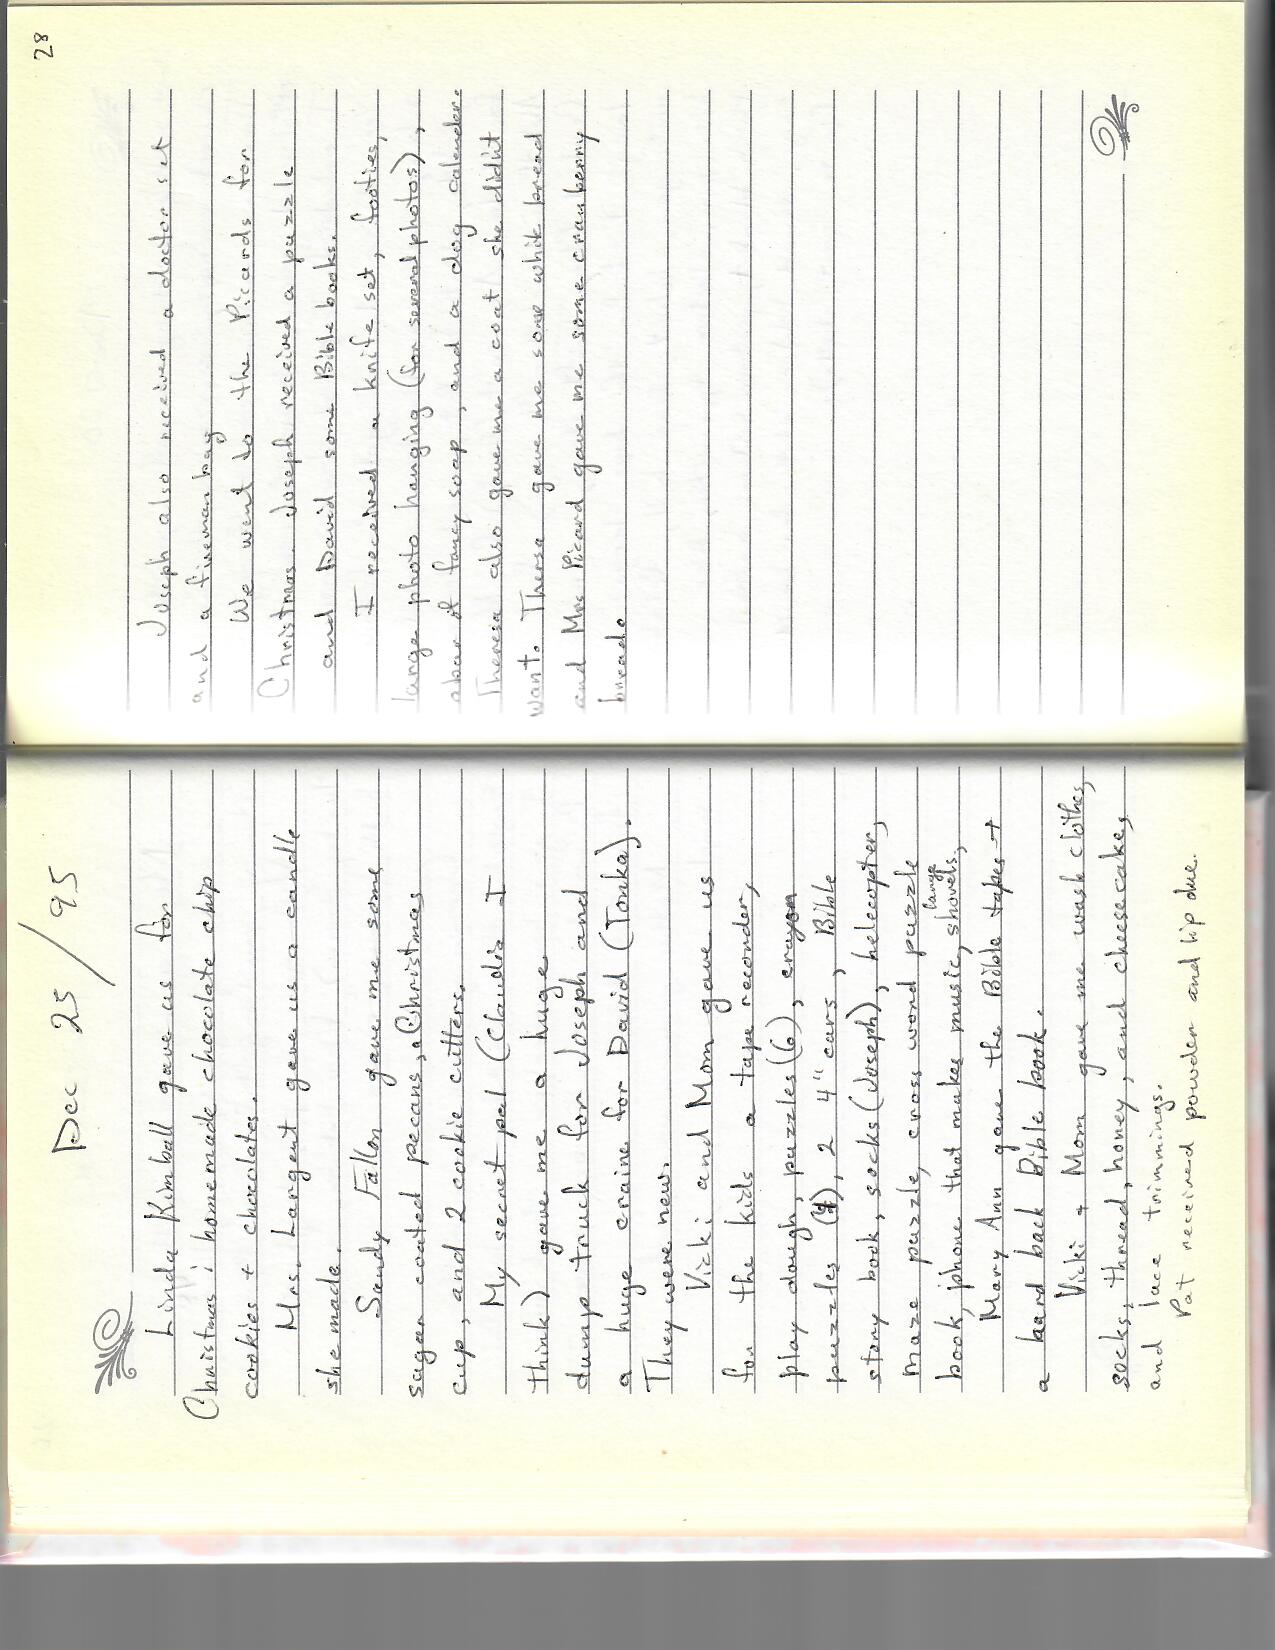 Dec 25/95
Linda Kimball gave us for
Christmas: homemade chocolate chip
cookies + chocolates.
Mrs. Largent gave us a candle
she made.
Sandy Fallon gave me some
sugar coated pecans, a Christmas
cup, and 2 cookie cutters.
My secret pal (Claudia I
think) gave me a huge
dump truck for Joseph and
a huge craine for David (Tonka).
They were new.
Vicki and Mom gave us
for the kids a tape recorder,
play dough, puzzles (6), crayon
puzzles (4), 2 4" cars, Bible
story book, socks (Joseph), helecopter,
maze puzzle, cross word puzzle
book, phone that makes music, large shovels,
Mary Ann gave the Bible tapes +
a hard back Bible book.
Vicki + Mom gave me wash clothes,
socks, thread, honey, and cheesecake,
and lace trimmings.
Pat received powder and lip due.
28
Joseph also received a doctor set
and a fireman bag
We went to the Picards for
Christmas. Joseph received a puzzle
and David some Bible books.
I received a knife set, footies,
large photo hanging (for several photos),
abar of fancy soap, and a dog calender.
Theresa also gave me a coat she didn't
want. Thersa gave me some whit bread
and Mrs Picard gave me some cranberry
bread.